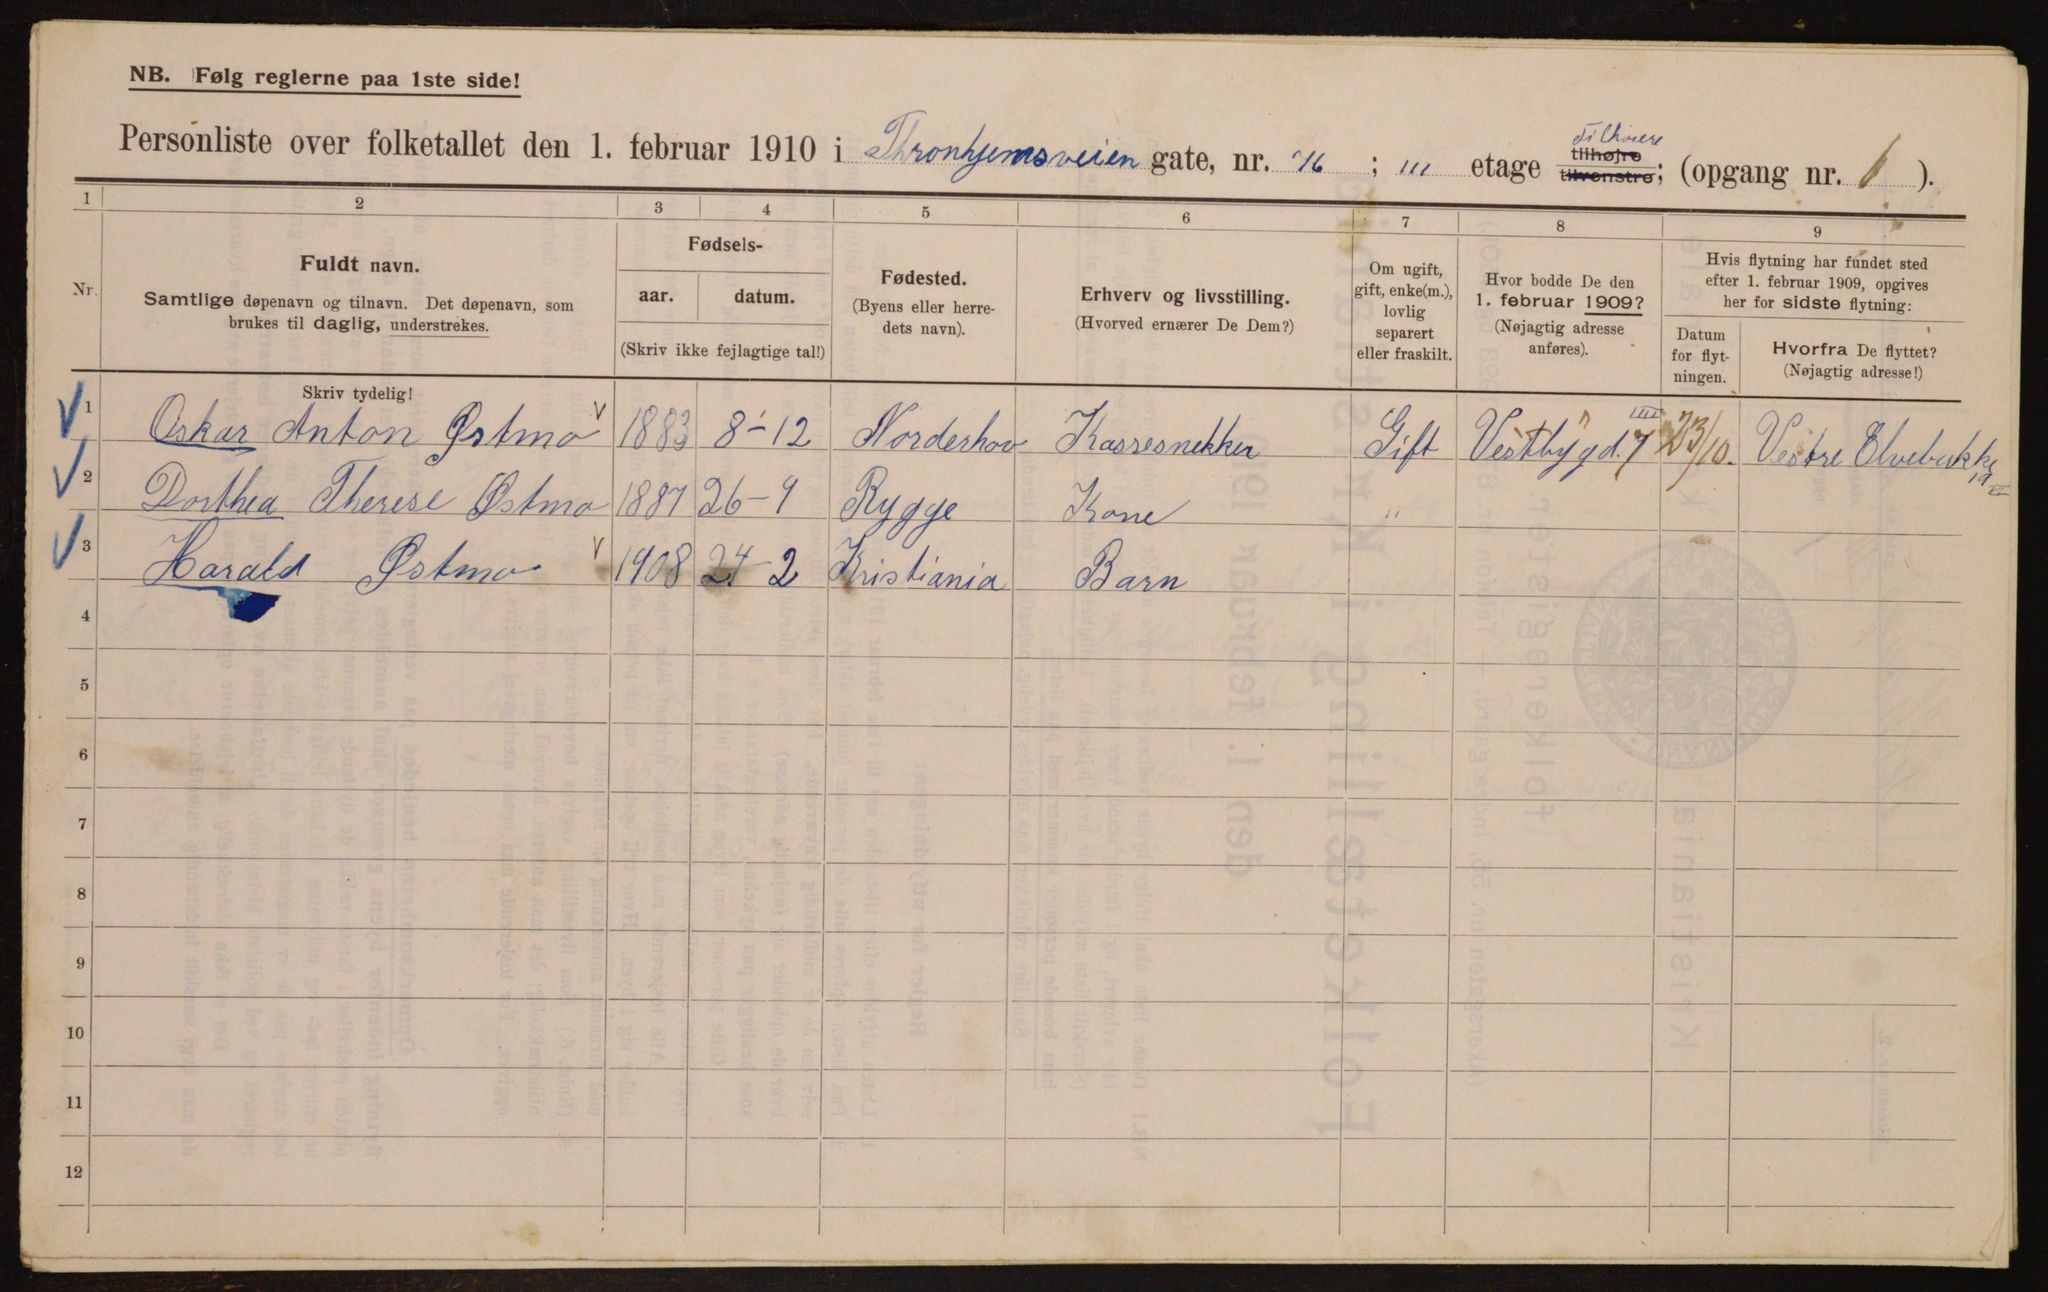 NB. Følg reglerne paa 1ste side!
Tilhøire
Personliste over folketallet den 1. februar 1910 i Thronhjemsveien gate, nr. 76 ; III etage tilhøjre tilvenstre; (opgang nr. 1 ).
1 2 3 4 5 6 7 8 9
Nr.
Fuldt navn.
Samtlige døpenavn og tilnavn. Det døpenavn, som
brukes til daglig, understrekes.
Fødsels-
aar. datum.
(Skriv ikke fejlagtige tal!)
Fødested.
(Byens eller herre-
dets navn).
Erhverv og livsstilling.
(Hvorved ernærer De Dem?)
Om ugift,
gift, enke(m.),
lovlig
separert
eller fraskilt.
Hvor bodde De den
1. februar 1909?
(Nøjagtig adresse
anføres).
Hvis flytning har fundet sted
efter 1. februar 1909, opgives
her for sidste flytning:
Datum
for flyt-
ningen.
Hvorfra De flyttet?
(Nøjagtig adresse!)
Skriv tydelig!
1 Oskar Anton Østmo 1883 8-12 Norderhov Kassesnekker Gift Vestbygd. 7 III 23/10. Vestre Elvebakke
2 Dorthea Therese Østmo 1887 26-9 Rygge Kone "
3 Harald Østmo 1908 24-2 Kristiania Barn
4
5
6
7
8
9
10
11
12